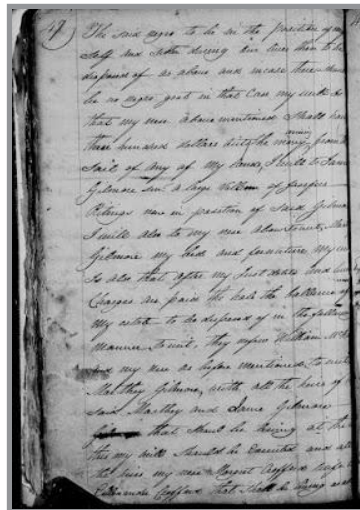 49
The said negro to be in the position of my
self and Sister during our lives then to be
disposed of as above and incase there should
be no negro got in that Case my will is
that my nese above mentioned Shall have
three hundred dollars out the money arising from
Sail of any of my lands, I will to James
Gilmore Sen. a large Vollom of
now in position of Said Gilmore
I will also to my nese above
Gilmore my bed and furniture my
So also that after my Just debts and
Charges are paid the hole the ballance of
my estate to be disposed of in the following
manner to wit, they William
and my nese as before mentioned, to wit
Marthey Gilmore, with all the heirs of
said Marthey and Jame Gilmore
that Shall be living at the
time my will Should be Executed and all
the heirs my nese Margret Crofford wife to
Crofford that Shall be living at